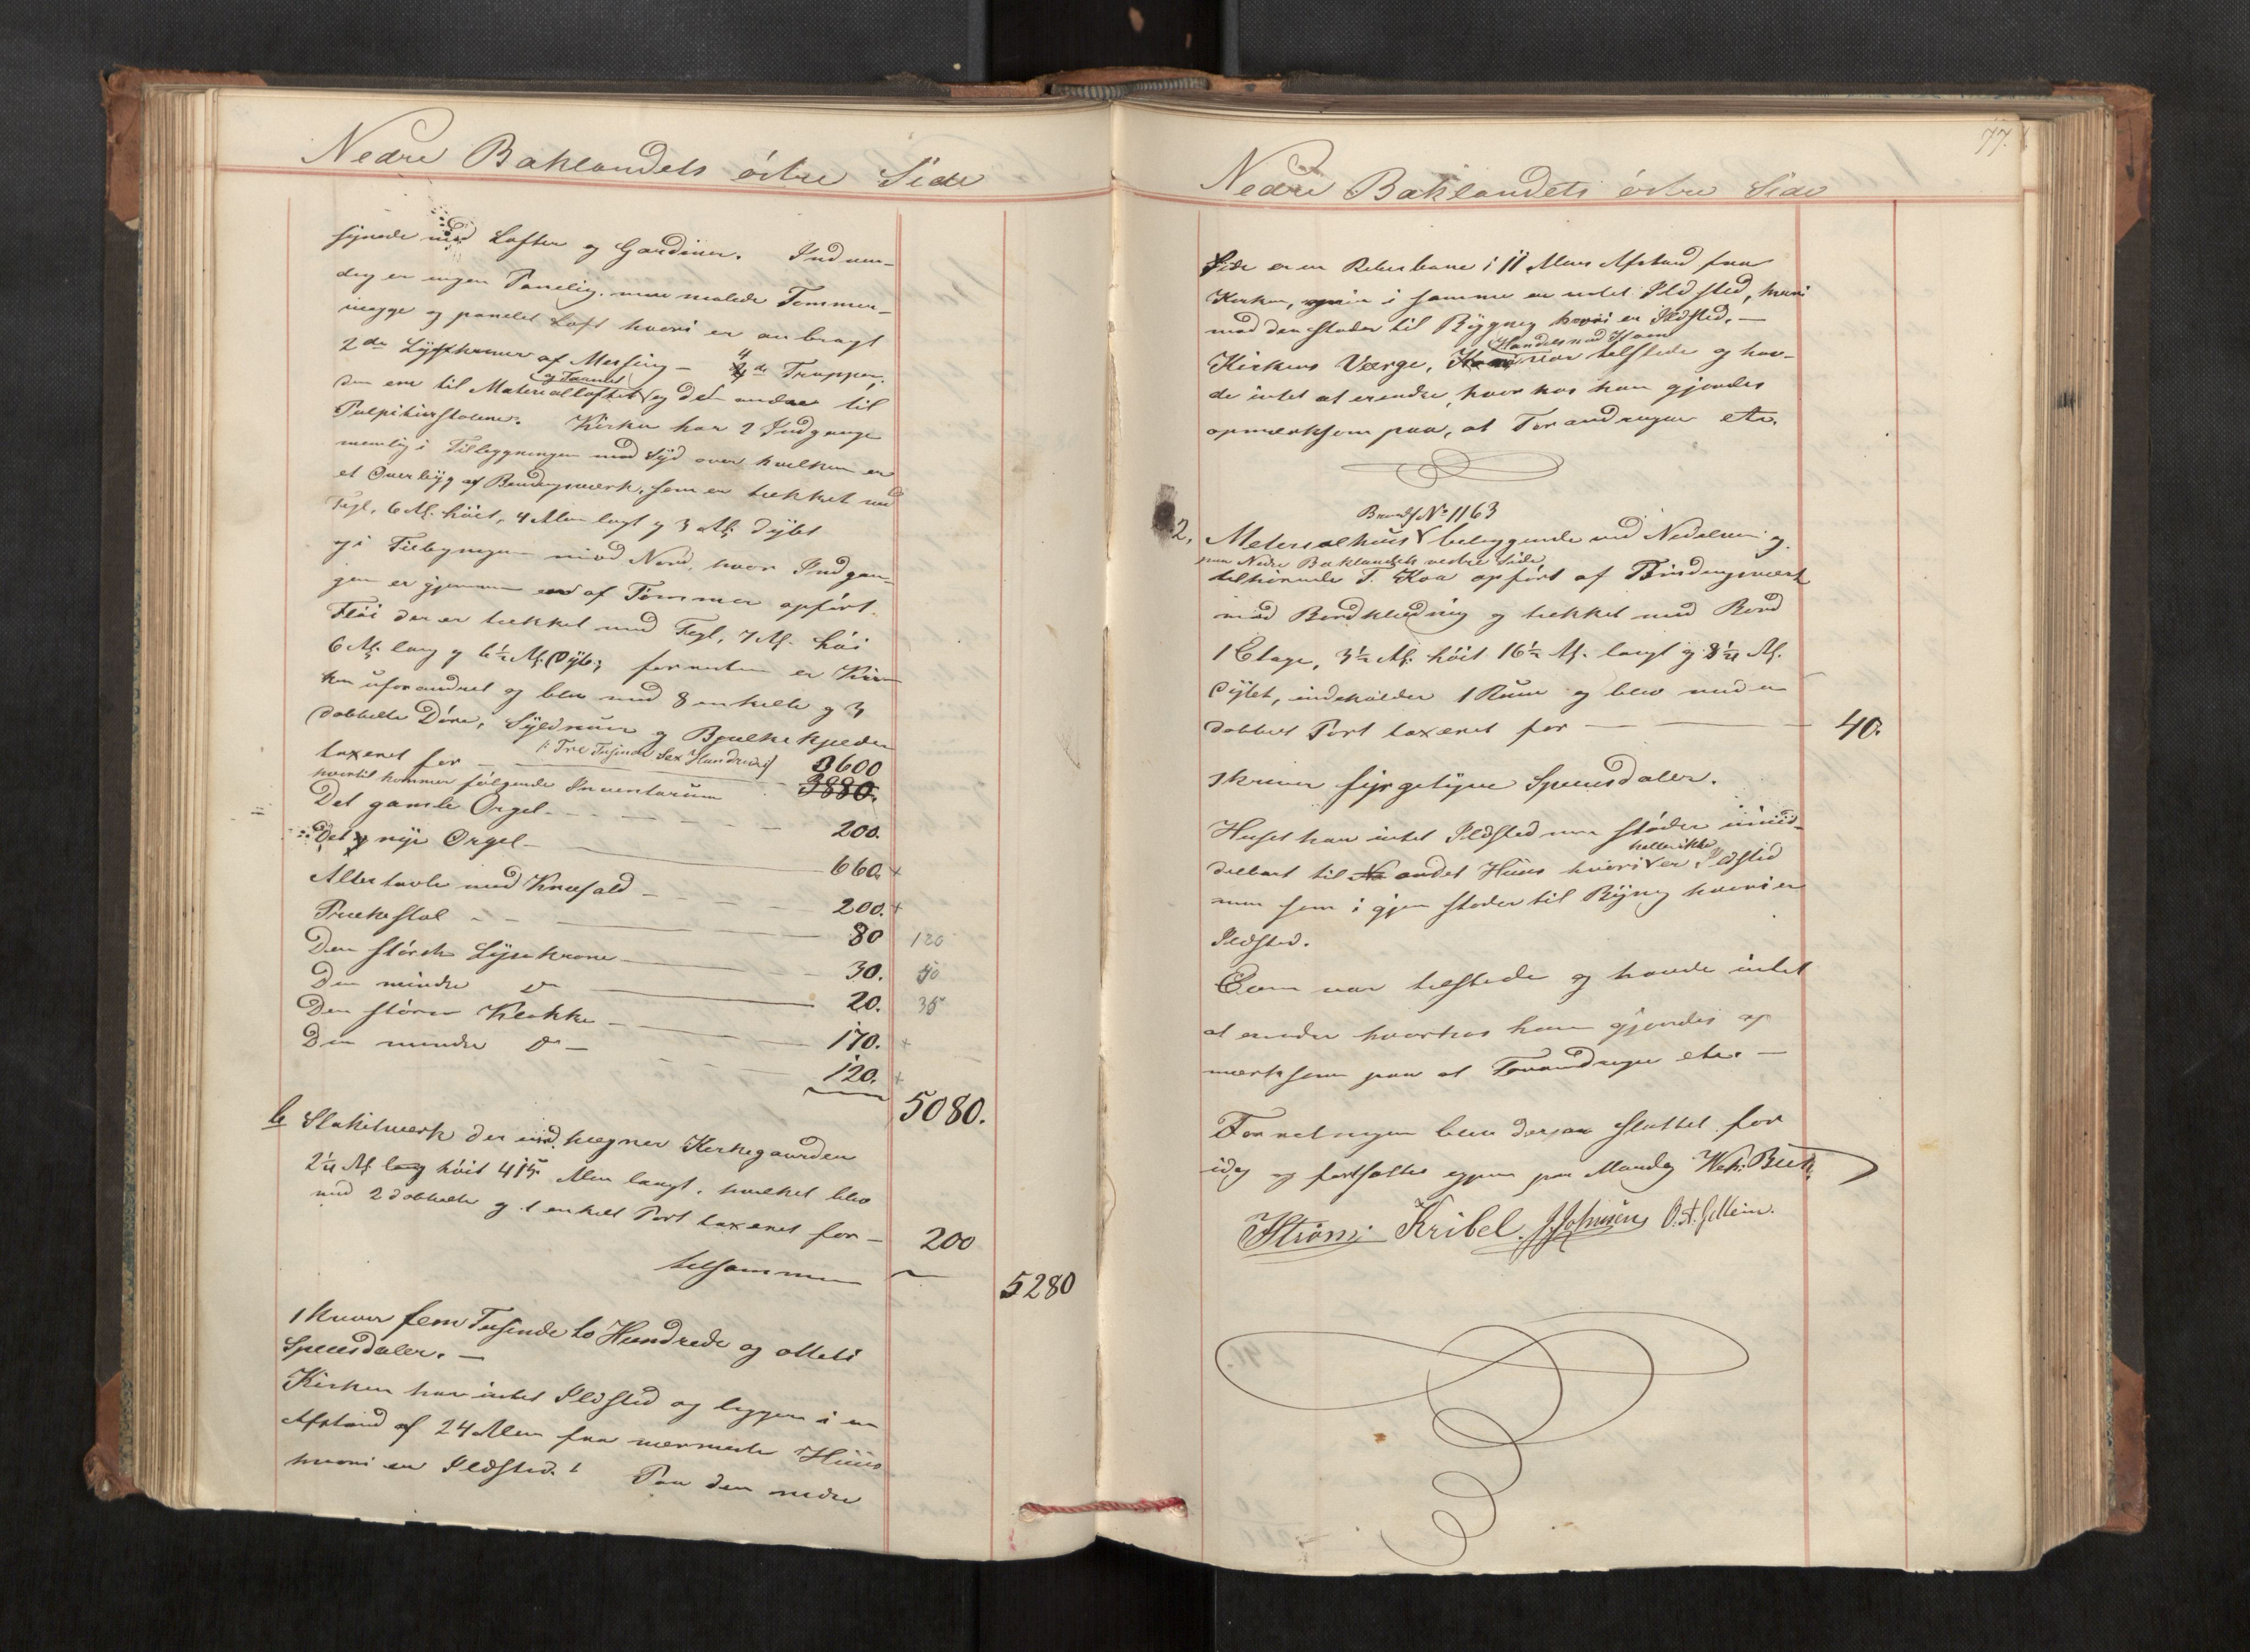 Nedre Baklandets östre Side
synede med Lofter og Gardiner. Indven-
dig er ingen Paneling, men malede Tømmer-
vægge og panelet Loft hvori er anbragt
2de Lysekroner af Messing — 4 de Trapper,
og Taarnet
den ene til Materialloftet og den anden til
Pulpiturstolene. Kirken har 2 Indgange
nemlig i Tilbygningen mod Syd over hvilken er
et Overbyg af Bindingsværk, som er tækket med
Tegl, 6 Al. høit, 4 Alen langt og 3 Al. dybt
og i Tilbygningen mod Nord, hvor Indgan-
gen er gjennem en af Tømmer opført
Fløi der er tækket med Tegl, 7 Al. høi
6 Al. lang og 6½ Al. dyb; forresten er Kir-
ken uforandret og blev med 8 enkelte og 3
dobbelte Døre, Syldmuur og Bjelkekjeder
/: Tre Tusinde Sex Hundrede :/
taxeret for — 3600
hvortil kommer følgende Inventarium 3880.
Det gamle Orgel — 200.
Det nye Orgel — 660. +
Altertavle med Knæfald — 200. +
Prækestol — 80 120
Den største Lysekrone — 30. 50
Den mindre do — 20. 35
Den større Klokke — 170. +
Den mindre do — 120. +
5080.
b Stakitværk der indhegner Kirkegaarden
2¼ Al. lang høit 415 Alen langt, hvilket blev
med 2 dobbelte og 1 enkelt Port taxeret for — 200
tilsammen 5280
skriver fem Tusinde to Hundrede og otteti
Speciesdaler. —
Kirken har intet Ildsted og ligger i en
Afstand af 24 Alen fra nærmeste Huus
hvori er Ildsted. Paa den nedre
77.
Nedre Baklandets östre Side
Side er en Reberbane i 11 Alens Afstand fra
Kirken, i samme er intet Ildsted, hvori
mod den støder til Bygning hvori er Ildsted. —
Handelsmand
Kirkens Værge, var tilstede og hav-
de intet at erindre, hvorhos han gjordes
opmærksom paa, at Forandringer etc.
Brand No 1163
2. Materialhuus beliggende ved Nidelven og
paa Nedre Baklandets vestre Side
tilhørende T. Koa opført af Bindingsværk
med Bordklædning og tækket med Bord
1 Etage, 3½ Al. høit 16½ Al. langt og 8¼ Al.
dybt, indeholder 1 Rum og blev med en
dobbelt Port taxeret for — 40.
skriver fyrgetyve Speciesdaler.
Huset har intet Ildsted men støder umid-
heller ikke
delbart til andet Huus hvori er Ildsted
men som igjen støder til Bygning hvori er
Ildsted.
Eieren var tilstede og havde intet
at erindre hvorhos han gjordes op-
mærksom paa at Forandringer etc. —
Forretningen blev derpaa sluttet for
idag og fortsættes igjen paa Mandag
Strøm Kribel. J. Johnsen O. A.